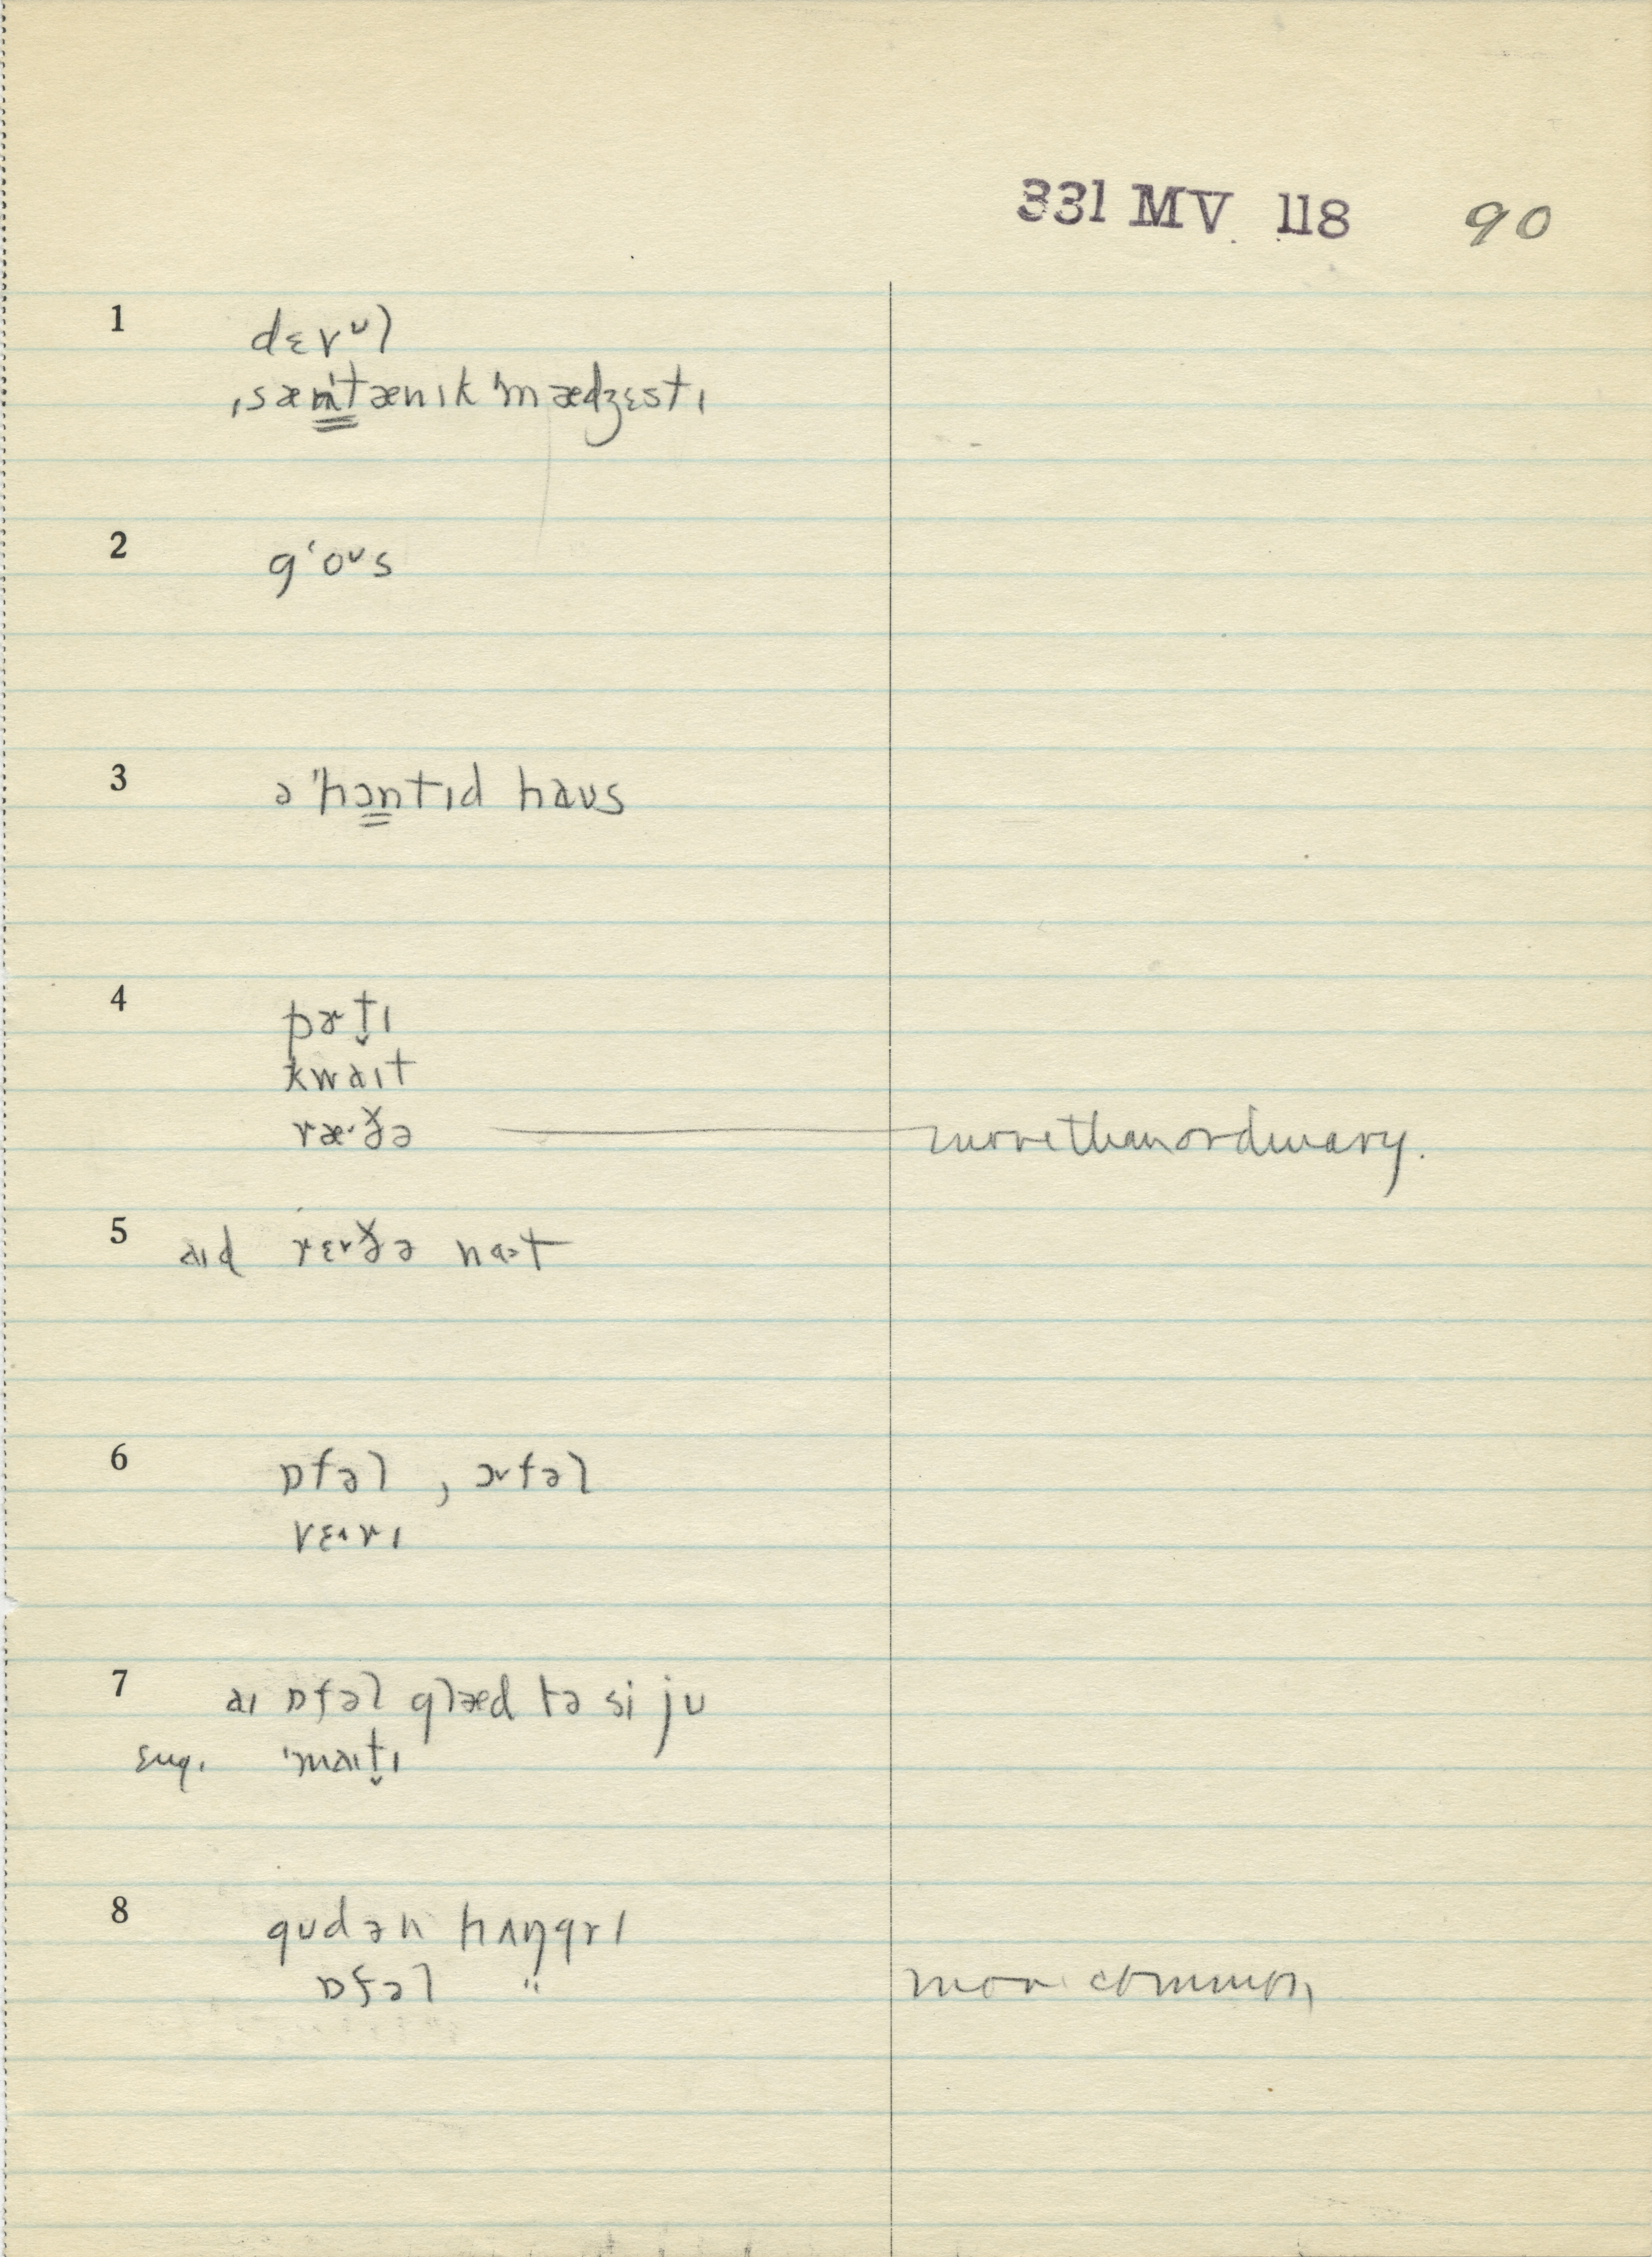 331 MV 118 90
1 dɛvᶷl
ˌsæn̳ˈtænɪk ˈmædʒɛstɪ
2 gʻoᶷs
3 ə ˈhɔn̳tɪd haʊs
4 pɚt̬ɪ
kwaɪt
ræ˞ðə morethanordinary.
5 aɪd rɛ˞ðə nɑt
6 ɒfəl , ɔ˞fəl
vɛ˞rɪ
7 aɪ ɒfəl glæd tə si ju
sug. ˈmaɪt̬ɪ
8 gʊdən hʌŋgrɪ
ɒfəl " more common